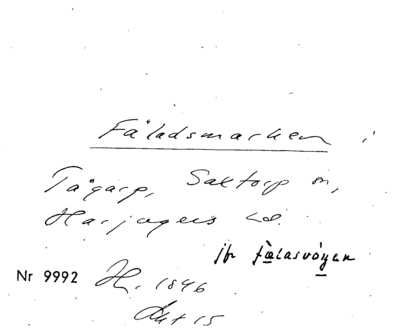 Fäladsmarken i
Tågarp, Saxtorp sn,
Harjagers hd.
jfr fælasvó̲gen
Nr 9992 H. 1846
Akt 15